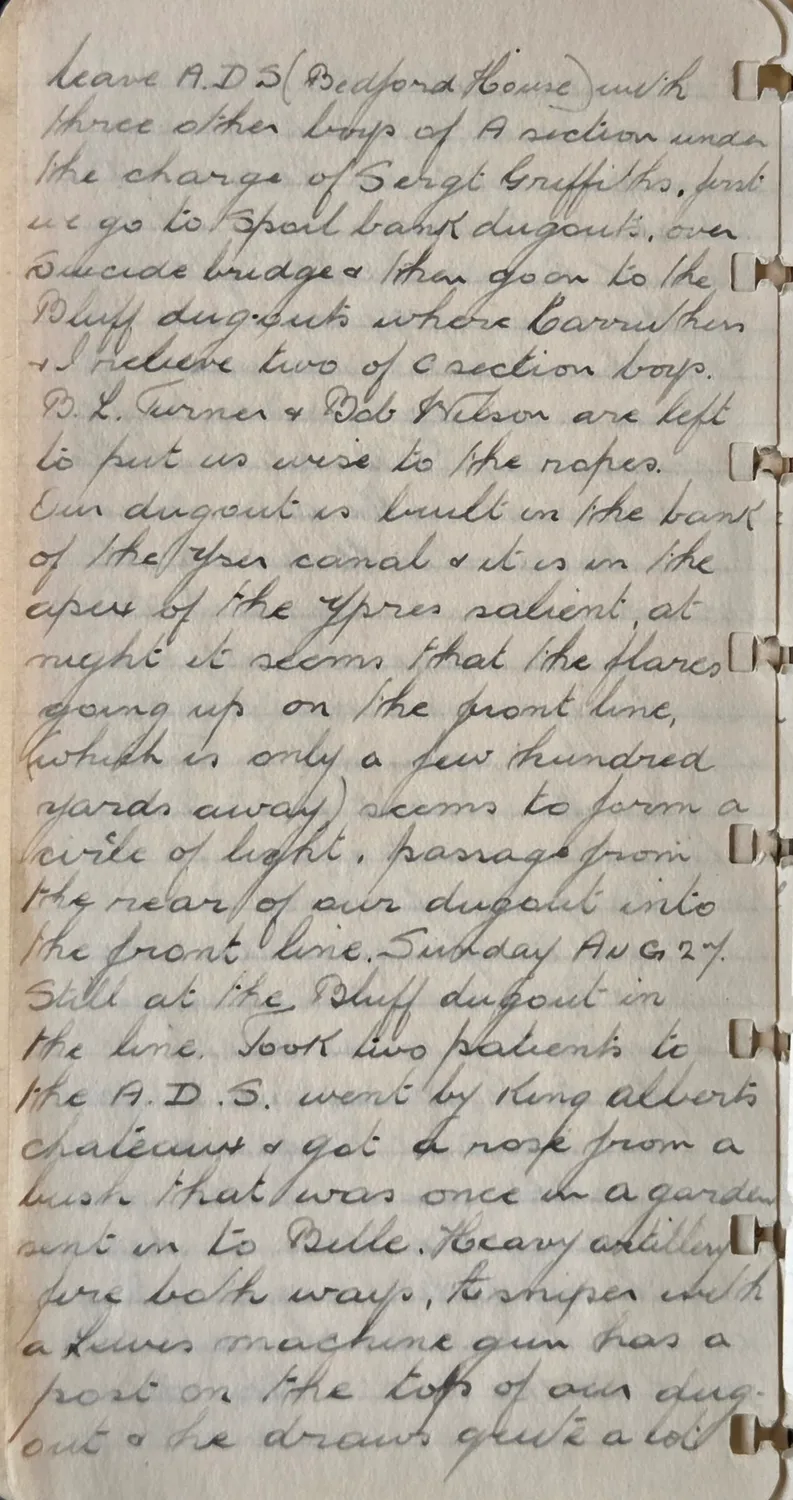 leave A.D S (Bedford House) with
three other boys of A section under
the charge of Sergt Griffiths, first
we go to Spoil bank dugouts, over
Suicide bridge & then go on to the
Bluff dug-outs where Carruthers
& I relieve two of C section boys.
B. L. Turner & Bob Wilson are left
to put us wise to the ropes.
Our dugout is built in the bank
of the Yser canal & it is in the
apex of the Ypres salient, at
night it seems that the flares
going up on the front line,
(which is only a few hundred
yards away) seems to form a
circle of light, passage from
the rear of our dugout into
the front line. Sunday AUG 27.
Still at the Bluff dugout in
the line. Took two patients to
the A. D. S. went by King alberts
chateaux & got a rose from a
bush that was once in a garden
sent in to Belle. Heavy artillery
fire both ways, A sniper with
a Lewis machine gun has a
post on the top of our dug-
out & he draws quite a lot